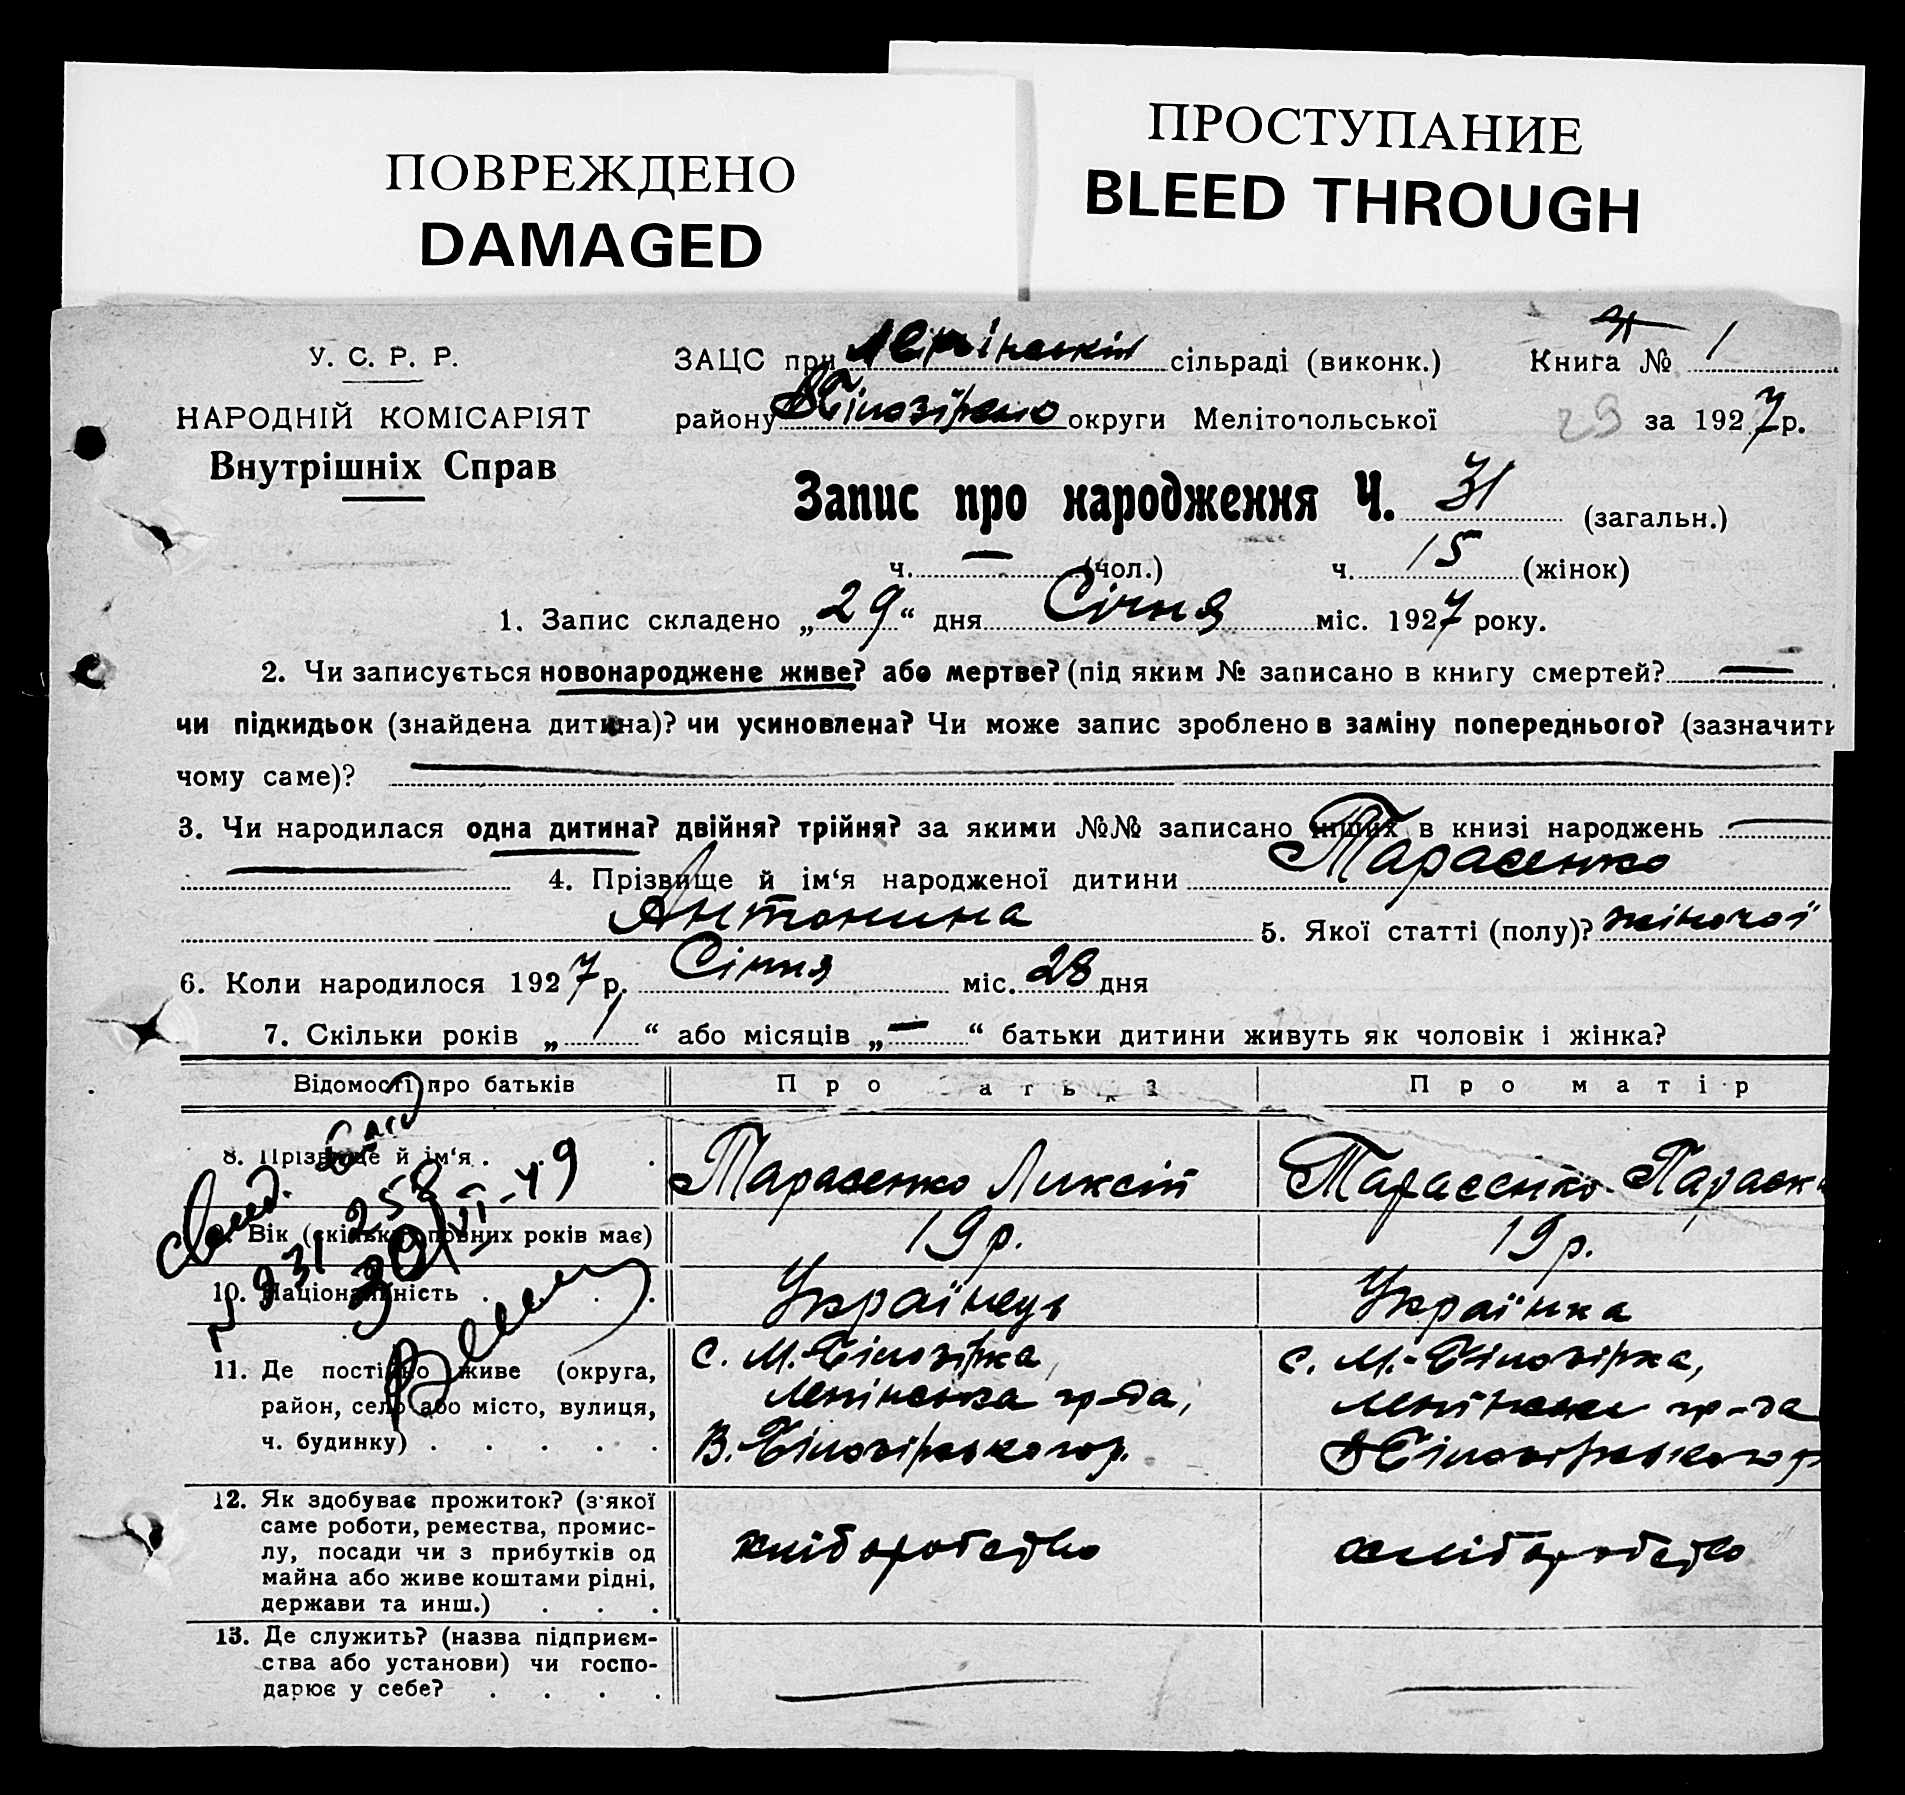 ПОВРЕЖДЕНО
DAMAGED
ПРОСТУПАНИЕ
BLEED THROUGH
У. С. Р. Р.
НАРОДНІЙ КОМІСАРІЯТ
Внутрішніх Справ
ЗАЦС при Ленінській сільраді (виконк.) Книга № 1
району В Білозірсько округи Мелітопольської 29 за 1927 р.
Запис про народження Ч. 31 (загальн.)
ч. — (чол.) ч. 15 (жінок)
1. Запис складено „29“ дня Січня міс. 1927 року.
2. Чи записується новонароджене живе? або мертве? (під яким № записано в книгу смертей? —
чи підкидьок (знайдена дитина)? чи усиновлена? Чи може запис зроблено в заміну попереднього? (зазначити
чому саме)? —
3. Чи народилася одна дитина? двійня? трійня? за якими №№ записано инших в книзі народжень —
— 4. Прізвище й ім‘я народженої дитини Тарасенко
Антонина 5. Якої статті (полу)? жіночої
6. Коли народилося 1927 р. Січня міс. 28 дня
7. Скільки років „1“ або місяців „—“ батьки дитини живуть як чоловік і жінка?
Відомості про батьків Про батька Про матір
8. Прізвище й ім‘я . . . Тарасенко Ликсій Тарасенко Параск
9. Вік (скільки повних років має) 19 р. 19 р.
10. Національність . . . . Українець Українка
11. Де постійно живе (округа,
район, село або місто, вулиця,
ч. будинку) . . . . .
с. М.-Білозірка,
Ленінська гр-да,
В.-Білозірського р.
с. М.-Білозірка,
Ленінська гр-да
В Білозірського р
12. Як здобуває прожиток? (з‘якої
саме роботи, ремества, промис-
лу, посади чи з прибутків од
майна або живе коштами рідні,
держави та инш.) . . .
хліборобство хліборобство
13. Де служить? (назва підприєм-
ства або установи) чи госпо-
дарює у себе? . . . .
— —